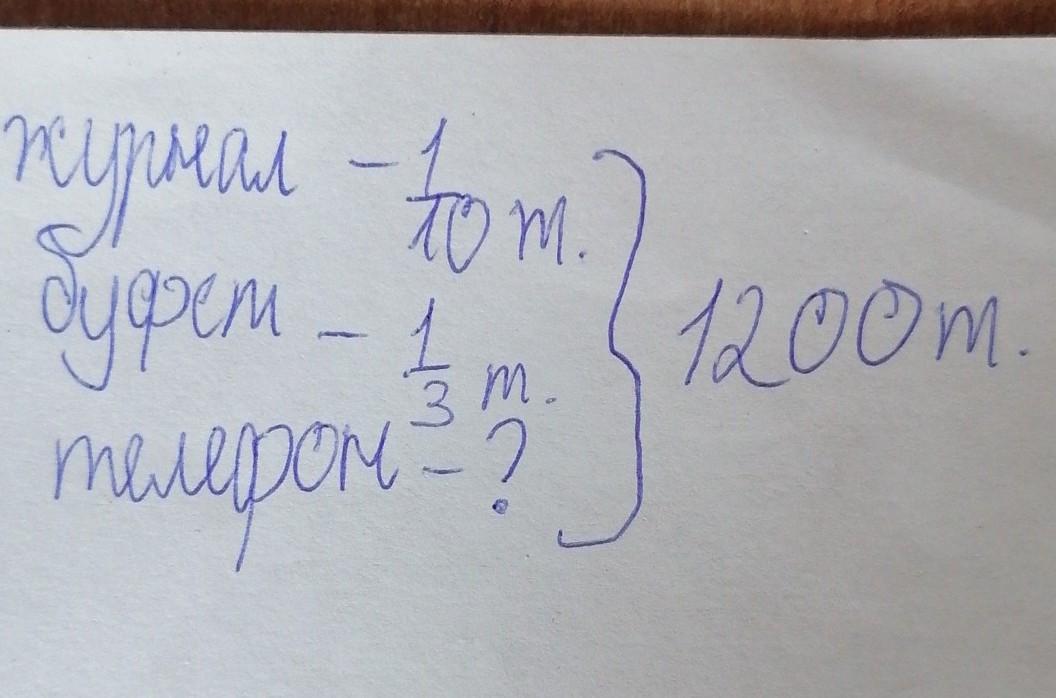 журнал - 1/10 т.
буфет - 1/3 т.
телефон - ?
} 1200 т.